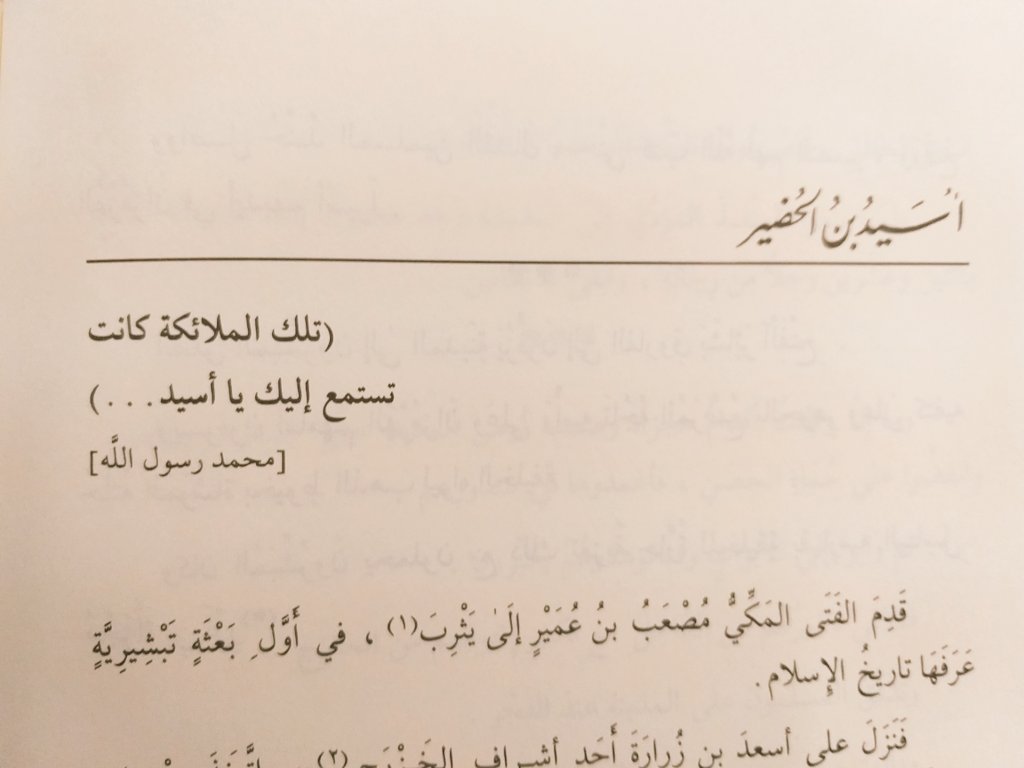 أُسَيدُ بنُ الحُضَير
(تلك الملائكة كانت
تستمع إليك يا أسيد...)
[محمد رسول اللَّه]
قَدِمَ الفَتَى المَكِّيُّ مُصْعَبُ بنُ عُمَيْرٍ إلَىٰ يَثْرِبَ(١) ، في أَوَّلِ بَعْثَةٍ تَبْشِيرِيَّةٍ
عَرَفَهَا تاريخُ الإِسلام.
فَنَزَلَ على أسعدَ بنِ زُرارَةَ أَحَدِ أشرافِ الخَزْرَجِ(٢)